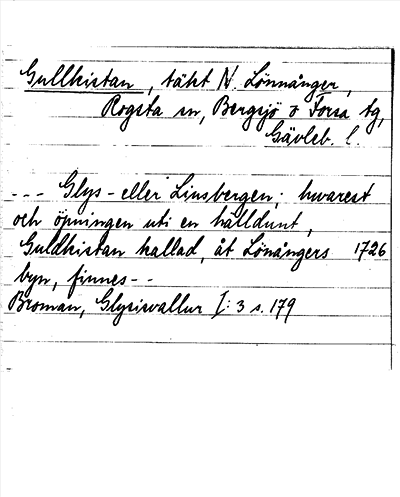 Gullkistan, täkt N. Lönnånger,
Rogsta sn, Bergsjö o Forsa tg,
Gävleb. l.
--- Glys- eller Linsbergen; hwarest
och öpningen uti en hälldunt,
Guldkistan kallad, åt Lönångers 1726
byn, finnes--
Broman, Glysisvallur I:3 s. 179